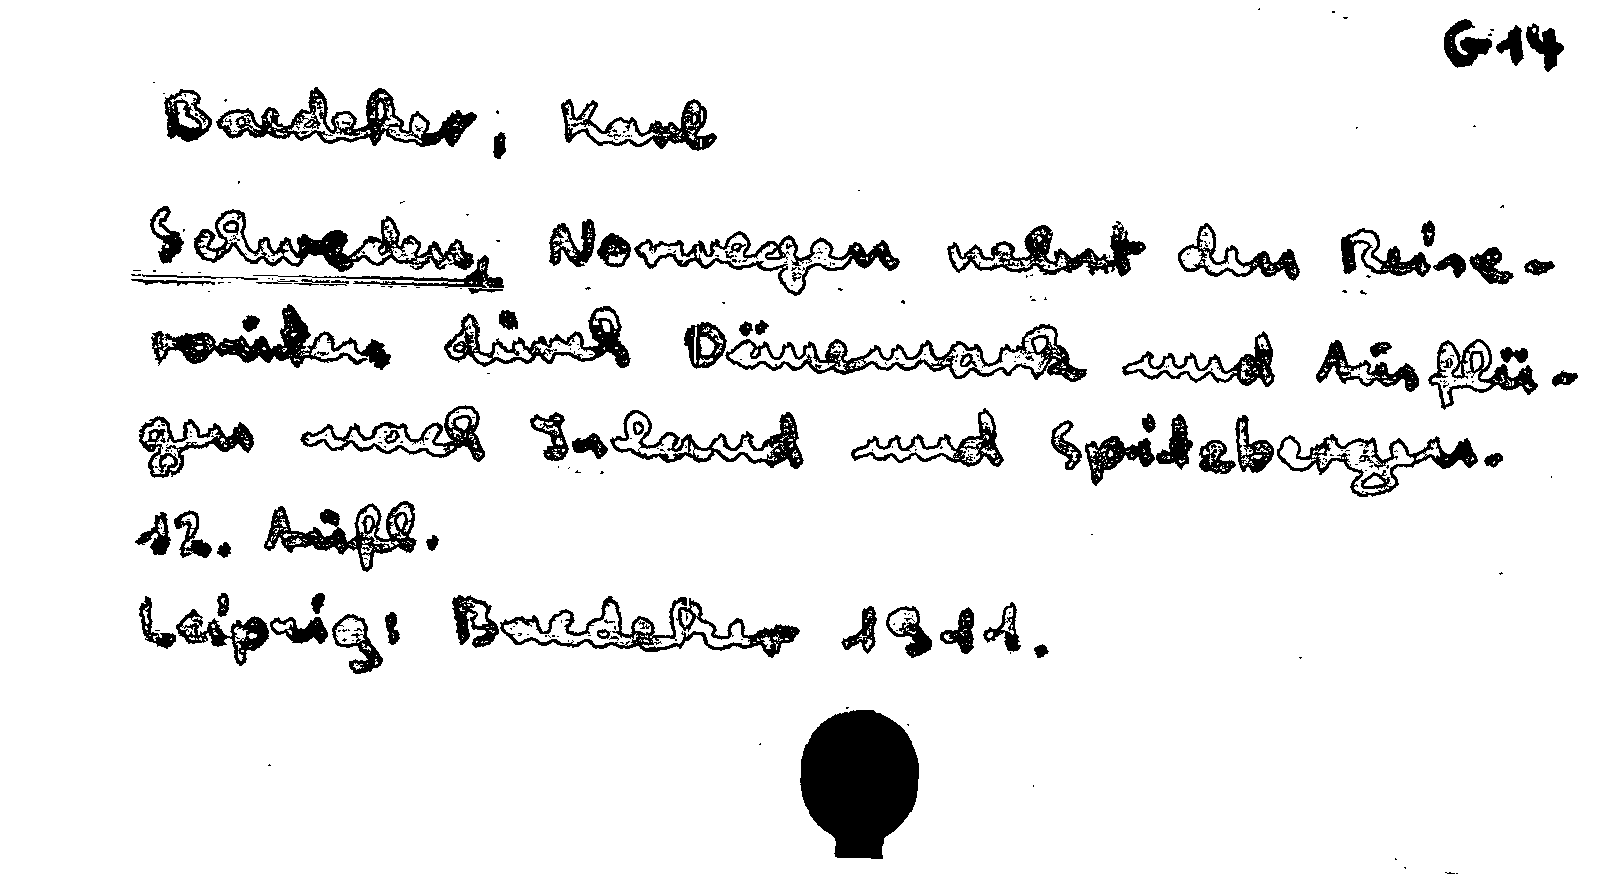 G 14
Baedeker, Karl
Schweden, Norwegen nebst den Reise-
routen durch Dänemark und Ausflü-
gen nach Island und Spitzbergen.
12. Aufl.
Leipzig: Baedeker 1911.